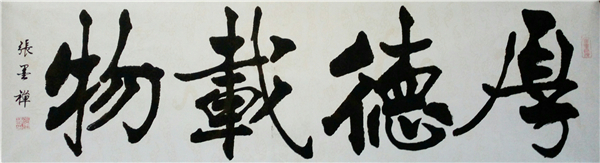 厚德載物
張墨禪